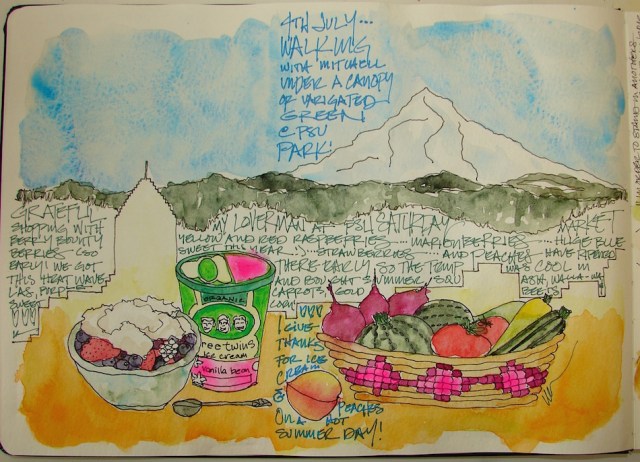 4TH JULY...
WALKING
WITH MITCHELL
UNDER A CANOPY
OF VARIGATED
GREEN
@ PSU
PARK!
GRATEFUL
SHOPPING WITH
BERRY BOUNTY
BERRIES
EARLY! WE GOT
THIS HEAT WAVE
LAS
MY LOVERMAN AT PSU SATURDAY MARKET
YELLOW AND RED RASPBERRIES.... MARIONBERRIES.... HUGE BLUE
SWEET THIS YEAR STRAWBERRIES AND PEACHES HAVE RIPENED
THERE EARLY SO THE TEMP WAS COOL IN
AND BOUGHT SUMMER
CARROTS GOLD BEEDS
ORGANIC
Three twins
ice cream
vanilla bean
I GIVE
THANKS
FOR ICE
CREAM
&
PEACHES
ON A HOT
SUMMER DAY!